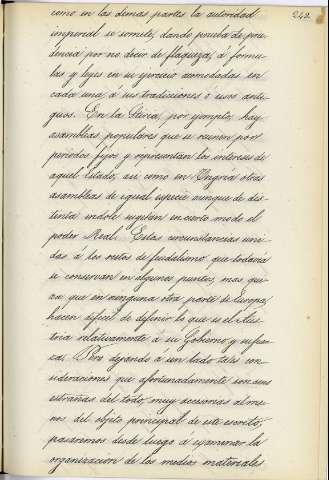 242
como en las demas partes la autoridad
imperial se somete, dando prueba de pru-
dencia por no decir de flaqueza, á fórmu-
las y leyes en su ejercicio acomodadas en
cada una á sus tradiciones ó usos anti-
guos. En la Stiria, por ejemplo, hay
asambleas populares que se reunen por
periodos fijos y representan los intereses de
aquel Estado, asi como en Ungría otras
asambleas de igual especie aunque de dis-
tinta indole sujetan en cierto modo el
poder Real. Estas circunstancias uni-
das á los restos de feudalismo que todavia
se conservan en algunos puntos, mas qui-
za que en ninguna otra parte de Europa,
hacen dificil de definir lo que es el Aus-
tria relativamente á su Gobierno y su fuer-
za. Pero dejando á un lado tales con-
sideraciones que afortunadamente son sino
estrañas del todo, muy accesorias al me-
nos del objeto principal de este escrito,
pasaremos desde luego á examinar la
organizacion de los medios materiales